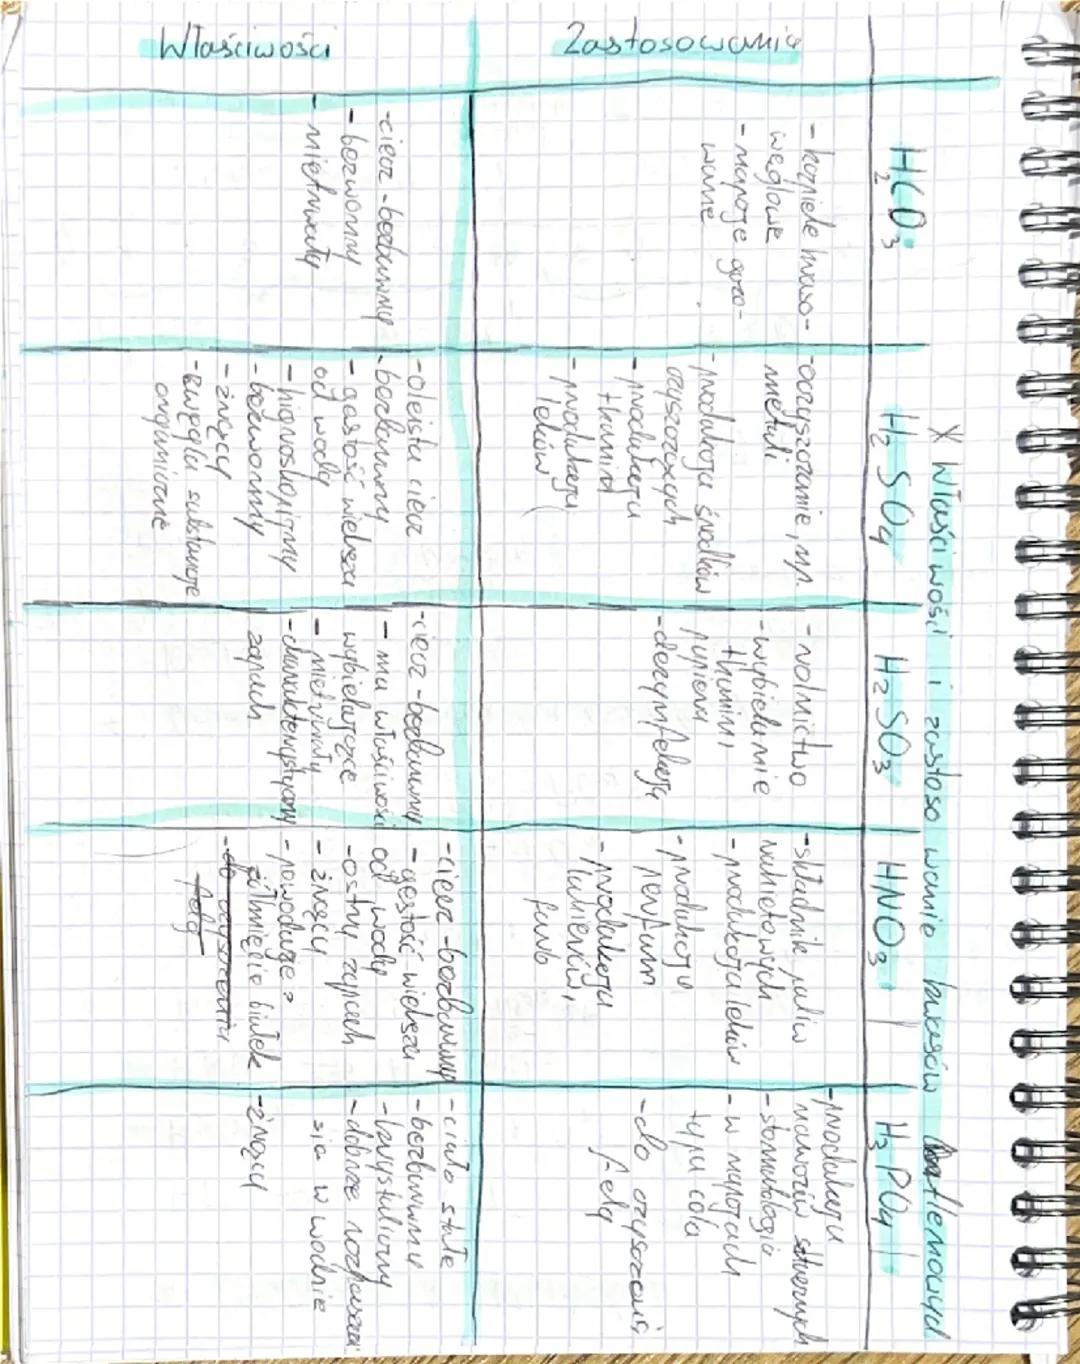 X Właściwości i zastosowanie kwasów
H₂CO₃
H₂SO₄
H₂SO₃
HNO₃
H₃PO₄
Zastosowanie
- kąpiele kwaso-
węglowe
- napoje gazo-
wane
- oczyszczanie, np.
metali
- produkcja środków
czyszczących
- produkcja
tkanin
- produkcja
leków
- rolnictwo
- wybielanie
tkanin i
papieru
- dezynfekcja
- składnik paliw
rakietowych
- produkcja leków
- produkcja
perfum
- produkcja
lakierów,
farb
- produkcja
nawozów
- stomatologia
- w napojach
typu cola
- do czyszczenia
felg
Właściwości
- ciecz - bezbarwny
- bezwonny
- nietrwały
- oleista ciecz
- bezbarwny
- gęstość większa
od wody
- higroskopijny
- bezwonny
- żrący
- zwęgla substancje
organiczne
- ciecz - bezbarwny
- ma właściwości
wybielające
- nietrwały
- charakterystyczny
zapach
- ciecz - bezbarwny
- gęstość większa
od wody
- ostry zapach
- żrący
- powoduje?
żółknięcie białek
- do czyszczenia
felg
- ciało stałe
- bezbarwny
- krystaliczny
- dobrze rozpuszcza
się w wodzie
- żrący